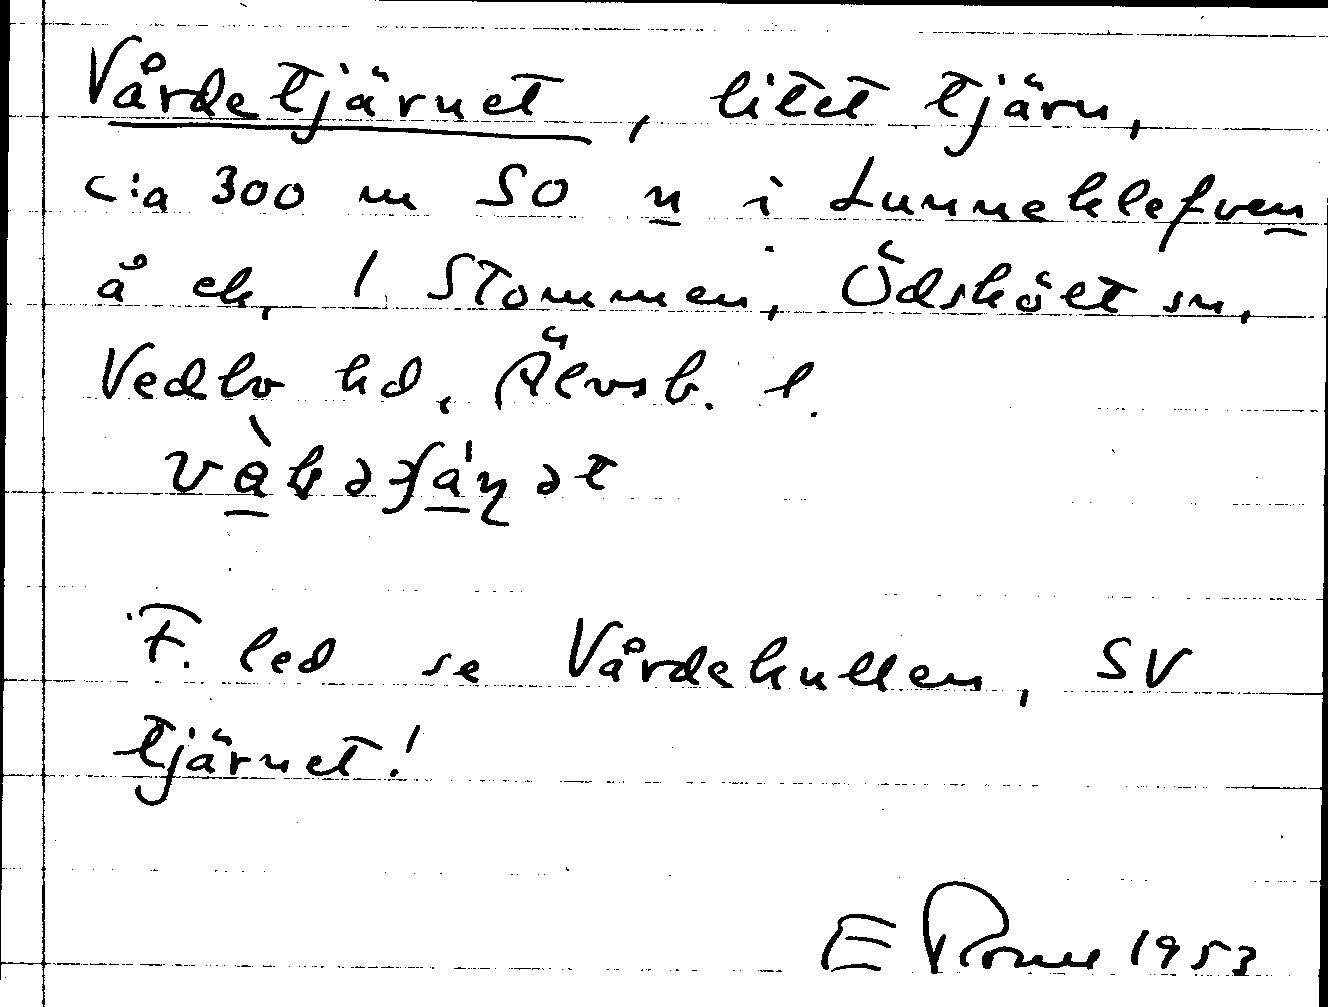 Vårdetjärnet, litet tjärn,
c:a 300 m SO n i Lunneklefven
å ek, 1 Stommen, Ödskölt sn,
Vedbo hd, Älvsb. l.
F. led se Vårdekullen, SV
tjärnet!
E 1953